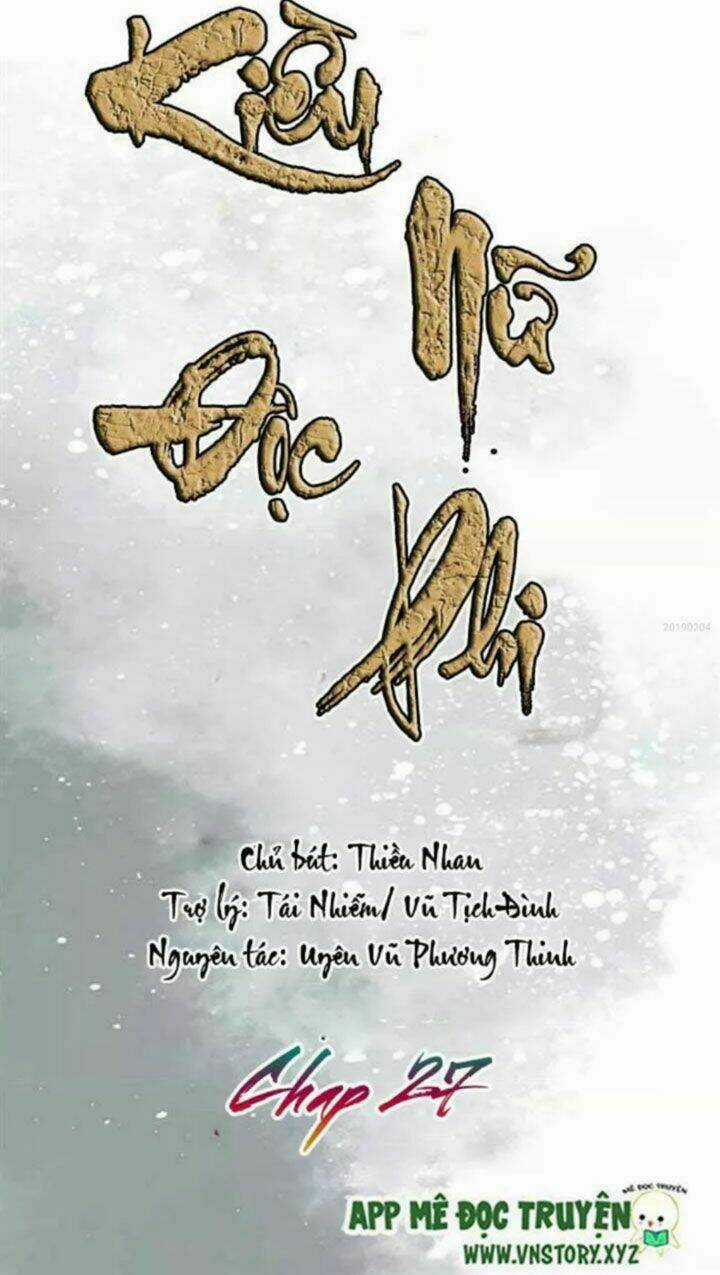 Kiều
Nữ
Độc
Phi
20190204
Chủ bút: Thiều Nhan
Trợ lý: Tái Nhiễm/ Vũ Tịch Đình
Nguyên tác: Uyên Vũ Phương Thinh
Chap 27
MÊ ĐỌC TRUYỆN
APP MÊ ĐỌC TRUYỆN
WWW.VNSTORY.XYZ